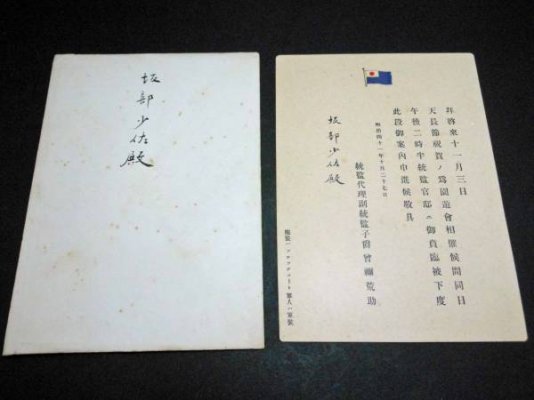 坂部少佐殿
拜啓來十一月三日
天長節祝賀ノ爲園遊會相催候間同日
午後二時半統監官邸ニ御賁臨被下度
此段御案内申進候敬具
明治四十一年十月二十七日
統監代理副統監子爵曾禰荒助
坂部少佐殿
服裝ハフロックコート軍人ハ軍裝